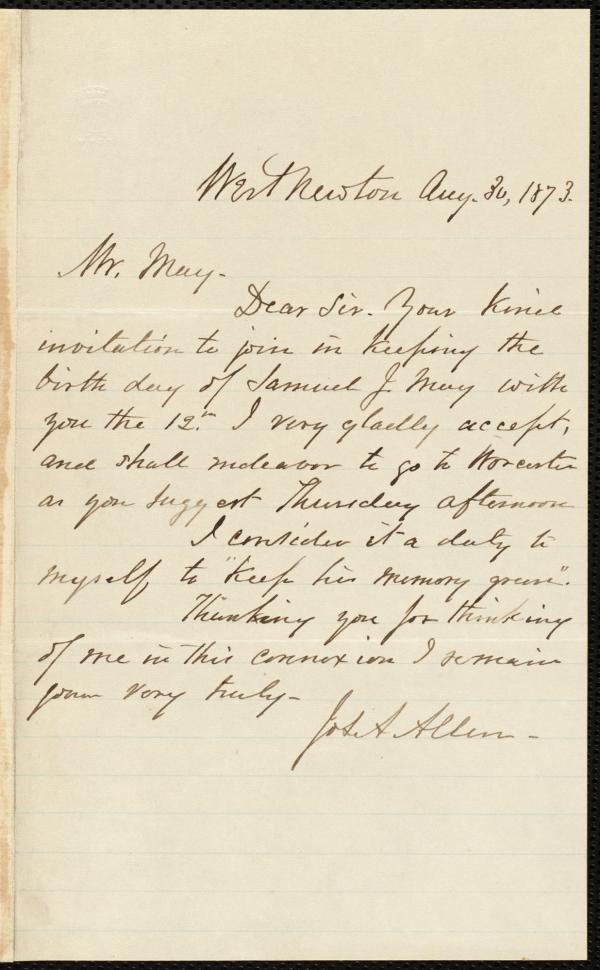 West Newton Aug. 30, 1873.
Mr. May-
Dear Sir. Your kind
invitation to join in keeping the
birth day of Samuel J. May with
you the 12.th I very gladly accept,
and shall endeavor to go to Worcester
as you suggest Thursday afternoon
I consider it a duty to
myself to "keep his memory green".
Thanking you for thinking
of me in this connexion I remain
your very truly-
Jos A Allen-